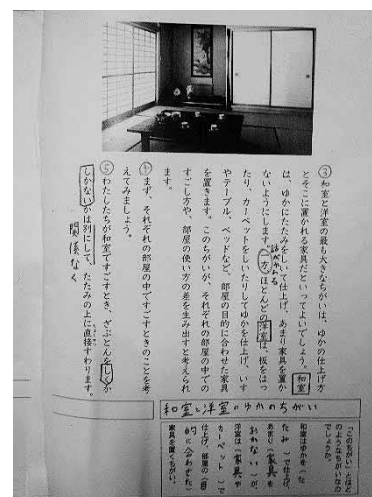 ③和室と洋室の最も大きなちがいは、ゆかの仕上げ方
とそこに置かれる家具だといってよいでしょう。和室
は、ゆかにたたみをしいて仕上げ、あまり家具を置か
ないようにします。一方、ほとんどの洋室は、板をはっ
話がかわる
たり、カーペットをしいたりしてゆかを仕上げ、いす
やテーブル、ベッドなど、部屋の目的に合わせた家具
を置きます。このちがいが、それぞれの部屋の中での
すごし方や、部屋の使い方の差を生み出すと考えられ
ます。
④まず、それぞれの部屋の中ですごすときのことを考
えてみましょう。
⑤わたしたちが和室ですごすとき、ざぶとんをしくか
しかないかは別にして、たたみの上に直接すわります。
関係なく
和室と洋室のゆかのちがい
「このちがい」とはど
のようなちがいなの
でしょうか。
和室はゆかを(た
たみ)で仕上げ、
あまり(家具を
おかない)が、
洋室は(
カーペット)で
仕上げ、部屋の(目
的に合わせた)
家具を置くちがい。